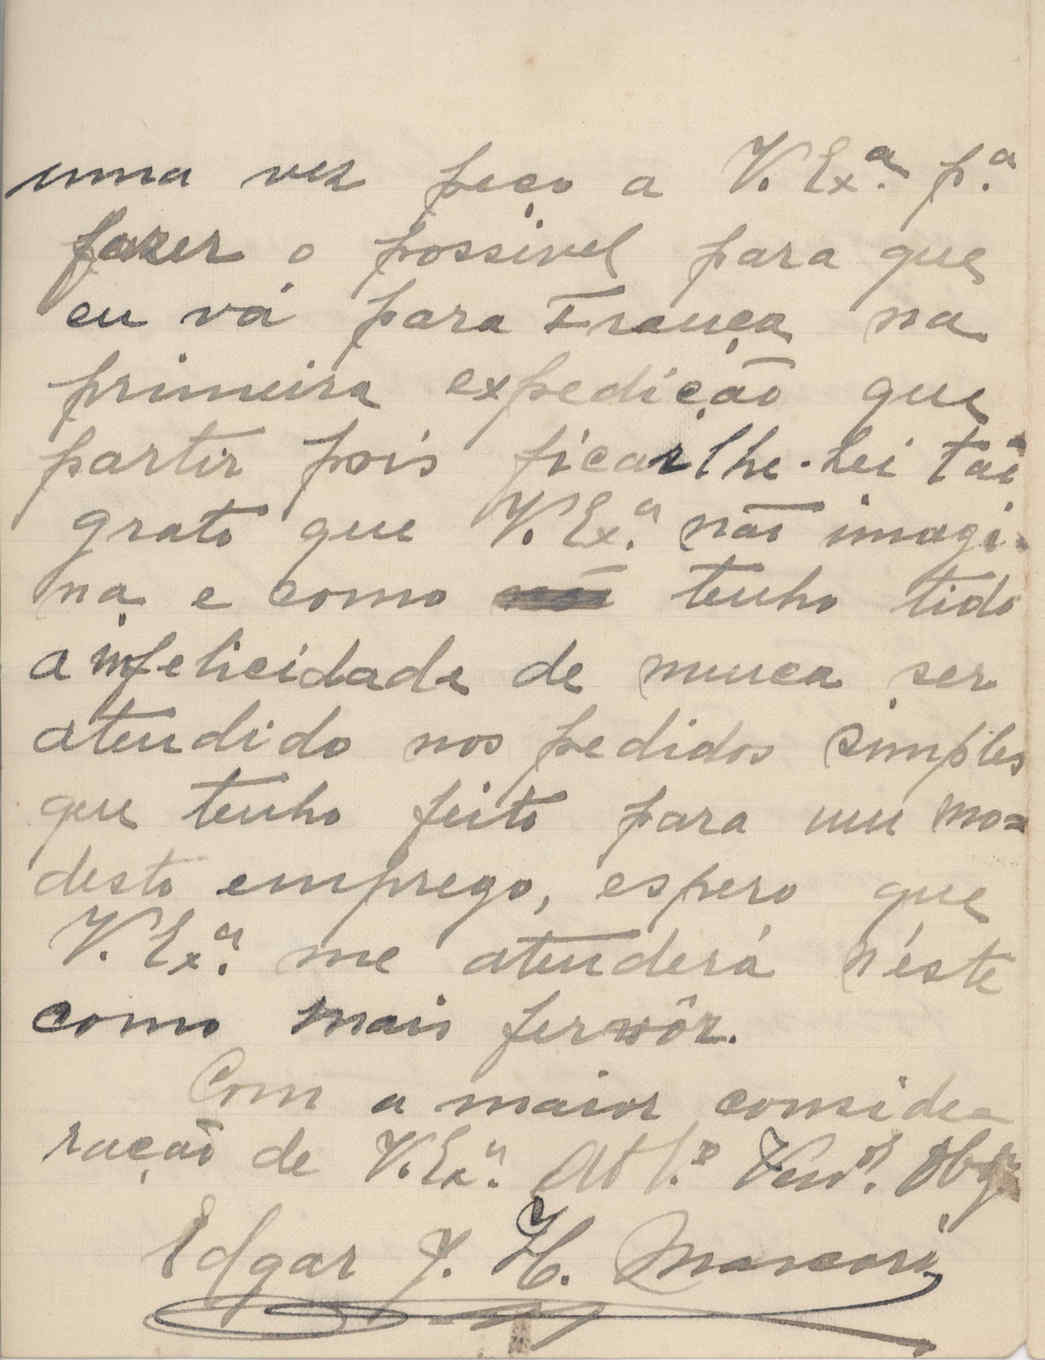 uma vez peço a V. Exª. p.ª
fazer o possivel para que
eu vá para França na
primeira expedição que
partir pois ficar lhe-hei tão
grato que V. Exª. não imagi-
na e como tenho tido
a infelicidade de nunca ser
atendido nos pedidos simples
que tenho feito para um mo=
desto emprego, espero que
V. Exª. me atenderá n'éste
como mais fervôr.
Com a maior conside-
ração de V. Exª. Att.º Ven.ºr Obg.
Edgar J. H.